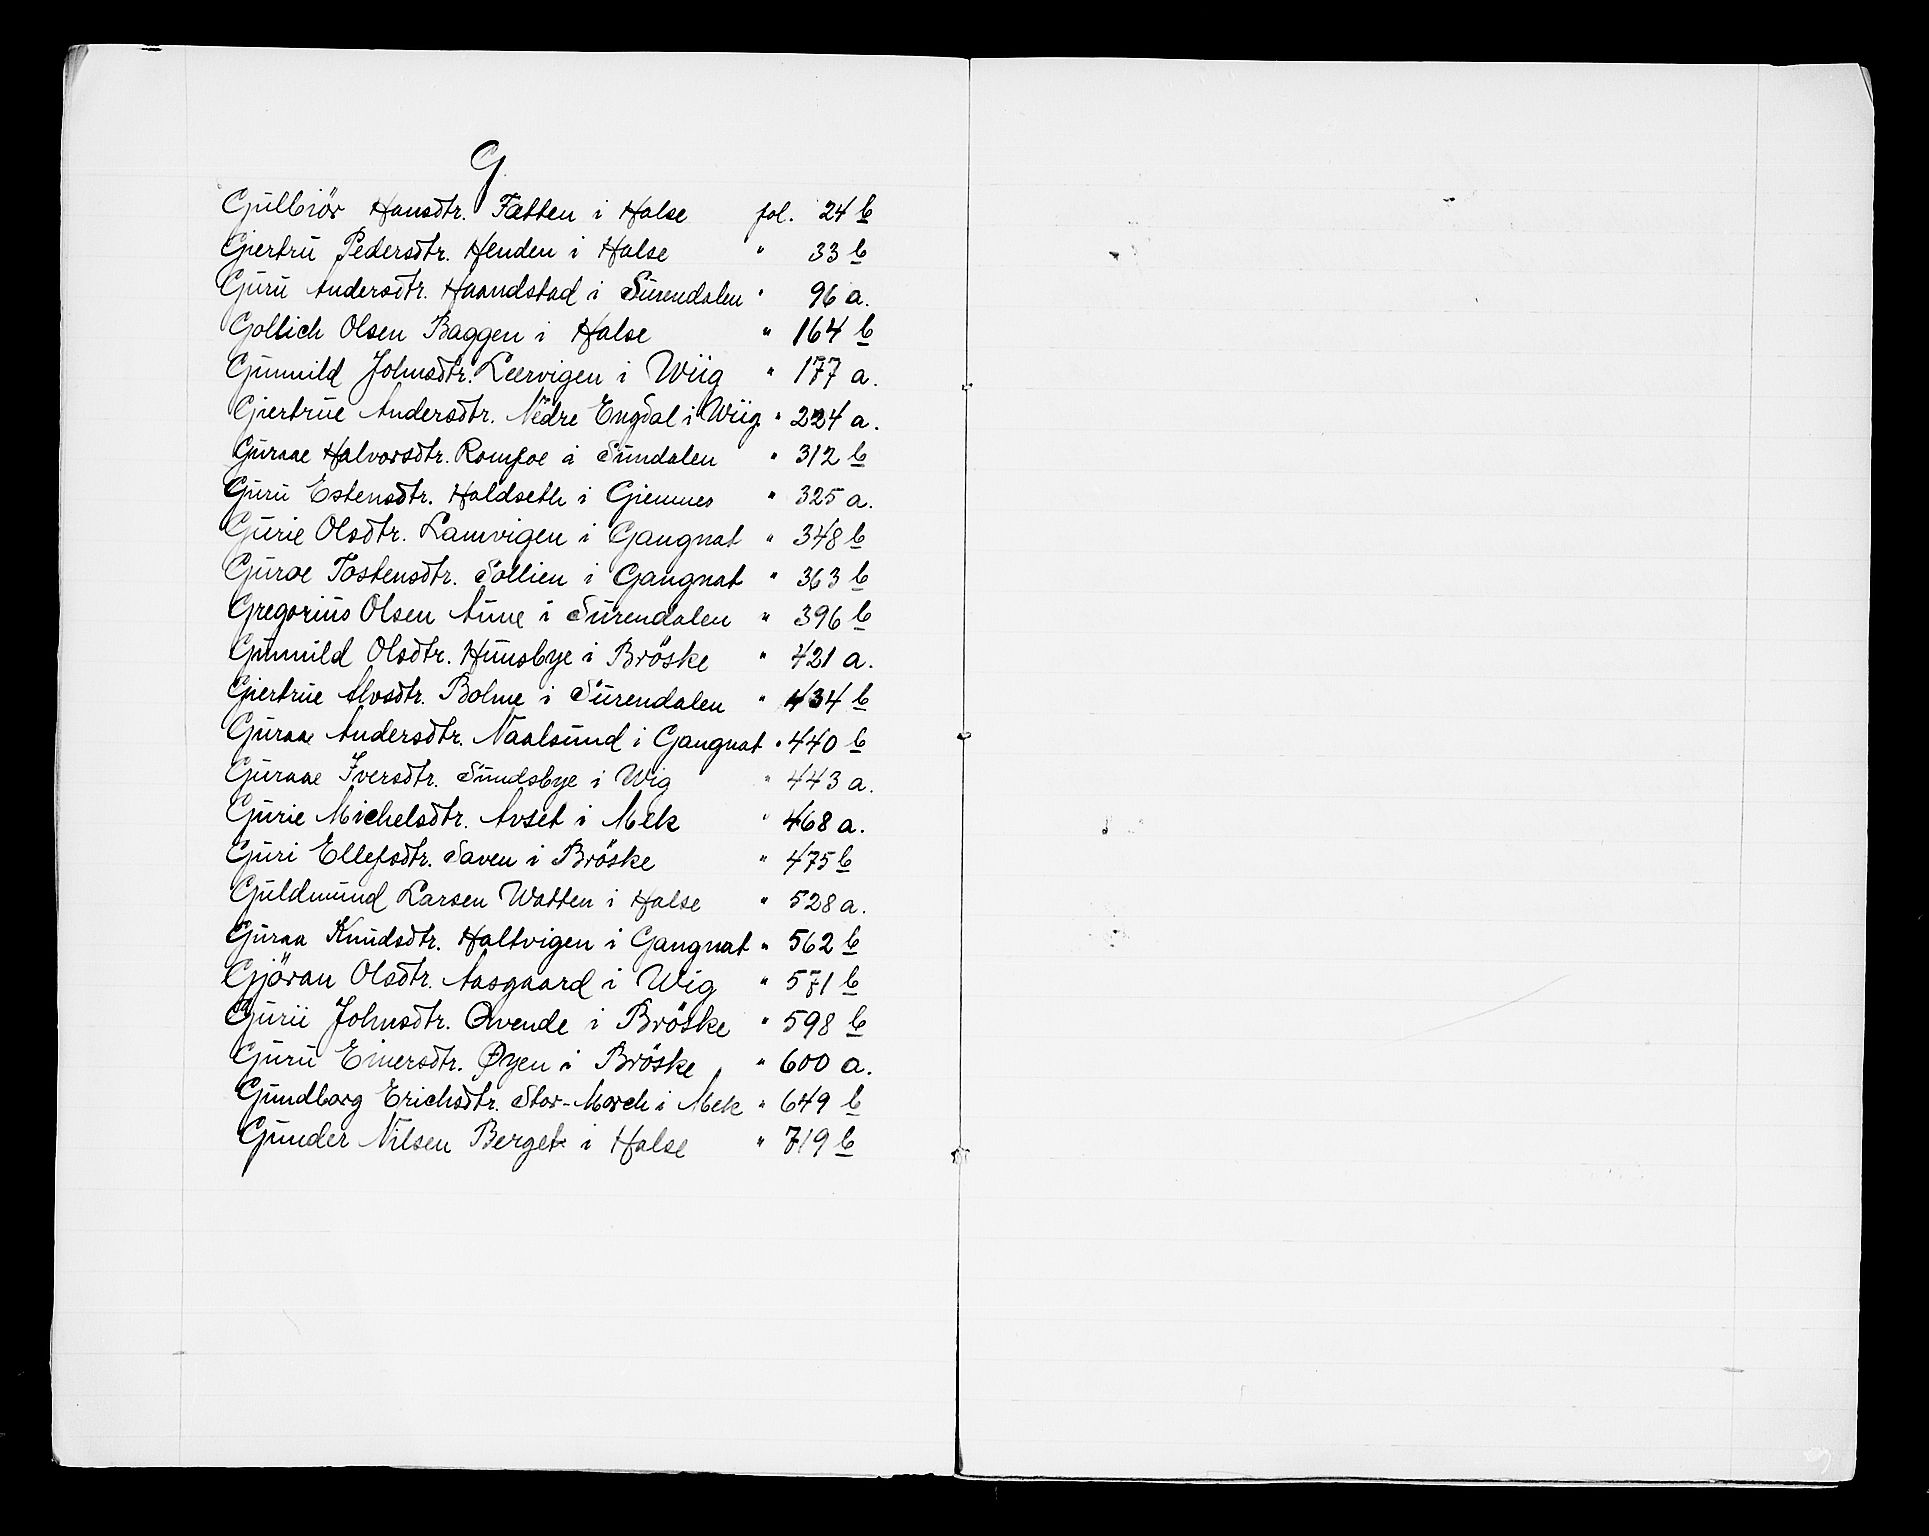 G.
Gulbiör Hansdtr. Fætten i Halse fol. 24 b
Giertru Pedersdtr. Henden i Halse " 33 b
Guru Andersdtr. Haandstad i Surendalen " 96 a.
Gollich Olsen Baggen i Halse " 164 b
Gunnild Johnsdtr. Leervigen i Wiig " 177 a.
Giertrue Andersdtr. Nedre Engdal i Wiig " 224 a.
Guraae Halvorsdtr. Romfoe i Sundalen " 312 b
Guru Estensdtr. Holdseth i Giemnes " 325 a.
Gurie Olsdtr. Lamvigen i Gangnat " 348 b
Guroe Tostensdtr. Sollien i Gangnat " 363 b
Gregorius Olsen Aune i Surendalen " 396 b
Gunnild Olsdtr. Huusbye i Bröske " 421 a.
Giertrue Alvsdtr. Bolme i Surendalen " 434 b
Guraae Andersdtr. Naalsund i Gangnat " 440 b
Guraae Iversdtr. Sundsbye i Wig " 443 a.
Gurie Michelsdtr. Avset i Mek " 468 a.
Guri Ellefsdtr. Saven i Bröske " 475 b
Guldmund Larsen Watten i Halse " 528 a.
Guraa Knudsdtr. Haltvigen i Gangnat " 562 b
Gjöran Olsdtr. Aasgaard i Wig " 571 b
Gurii Johnsdtr. Qvende i Bröske " 598 b
Guru Einersdtr. Øyen i Bröske " 600 a.
Gundborg Erichsdtr. Stor-Morch i Mek " 649 b
Gunder Nilsen Berget i Halse " 719 b